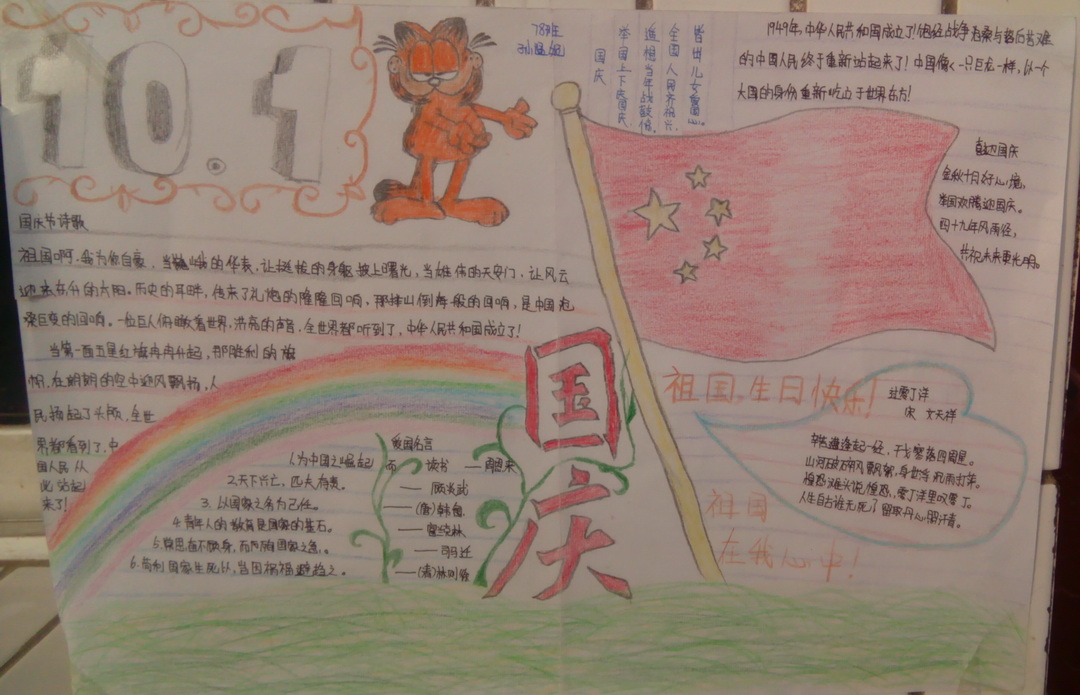 10.1
78班
国庆
举国上下庆国庆,
追想当年战敌情。
全国人民齐祝兴,
1949年,中华人民共和国成立了!饱经战争沧桑与
的中国人民终于重新站起来了!中国像一只巨龙一样,以一个
大国的身份重新屹立于世界东方!
喜迎国庆
金秋十月好心境,
举国欢腾迎国庆。
四十九年风雨径,
共祝未来更光明。
国庆节诗歌
祖国啊,我为你自豪,当巍峨的华表,让挺拔的身躯披上曙光,当雄伟的天安门,让风云
东升的太阳。历史的耳畔,传来了礼炮的隆隆回响,那排山倒海般的回响,是中国沧
桑巨变的回响。一位巨人俯瞰着世界,洪亮的声音,全世界都听到了,中华人民共和国成立了!
当第一面五星红旗冉冉升起,那胜利的旗
帜,在朗朗的空中迎风飘扬,人
民扬起了头颅,全世
界都看到了,中
国人民从
此站起
来了!
国庆
爱国名言
人为中国之崛起而读书 —周恩来
2.天下兴亡,匹夫有责。 —顾炎武
3.以国家之务为己任。 —(唐)韩愈
4.青年人的教育是国家的基石。 —富兰克林
5.常思奋不顾身,而殉国家之急。 —司马迁
6.苟利国家生死以,岂因祸福避趋之。 —(清)林则徐
祖国,生日快乐!
过零丁洋
宋 文天祥
辛苦遭逢起一经,干戈寥落四周星。
山河破碎风飘絮,身世浮沉雨打萍。
惶恐滩头说惶恐,零丁洋里叹零丁。
人生自古谁无死?留取丹心照汗青。
祖国
在我心中!